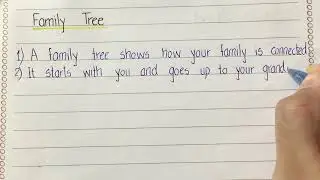 Family Tree
1) A family tree shows how your family is connected
2) It starts with you and goes up to your grand